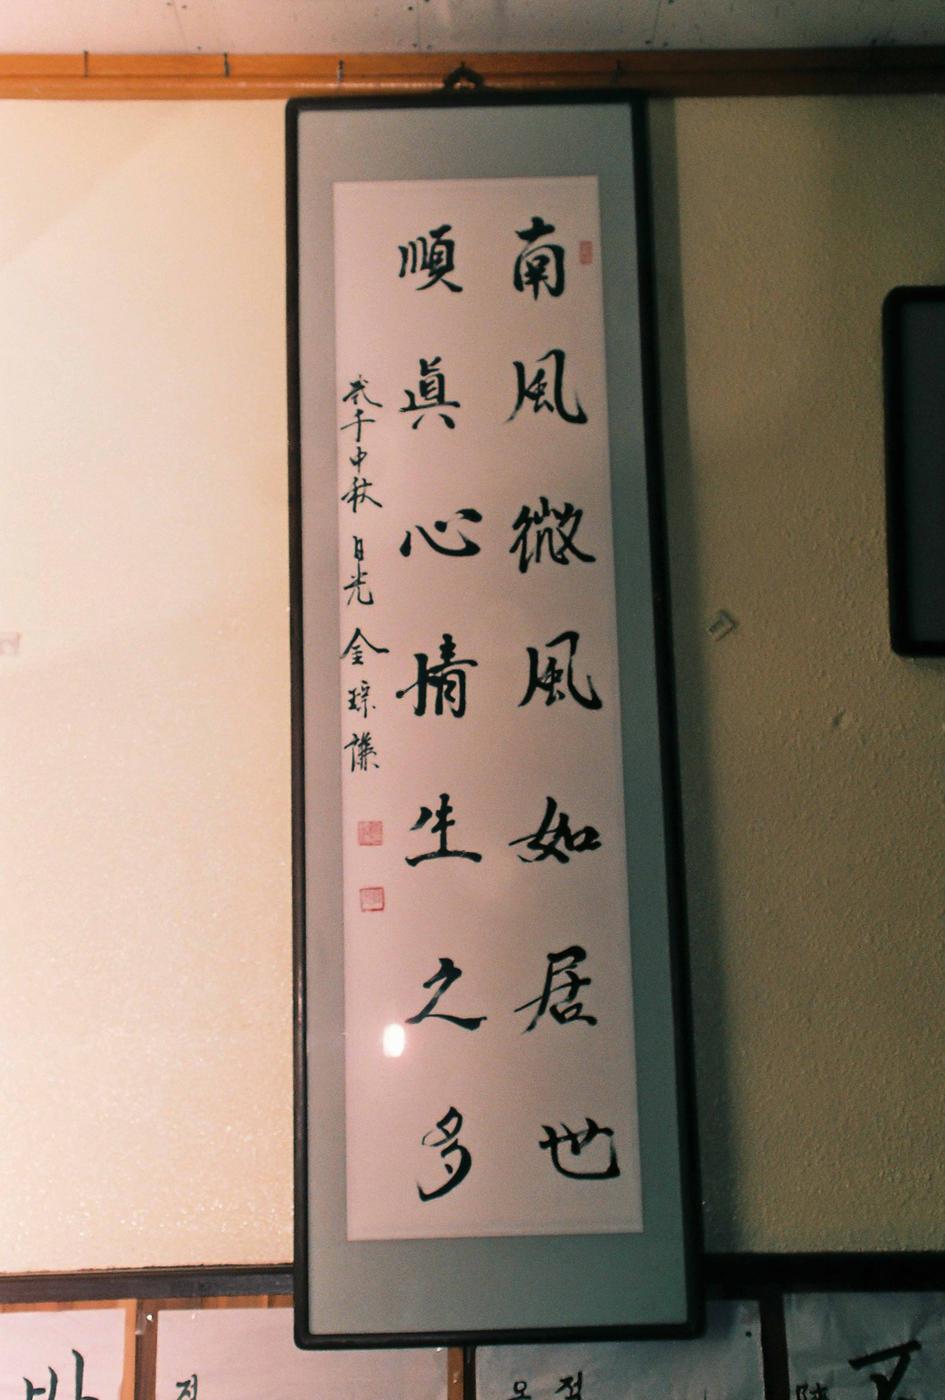 南風微風如居世
順眞心情生之多
貳千中秋 日光 金琮謙
바
정
오 정